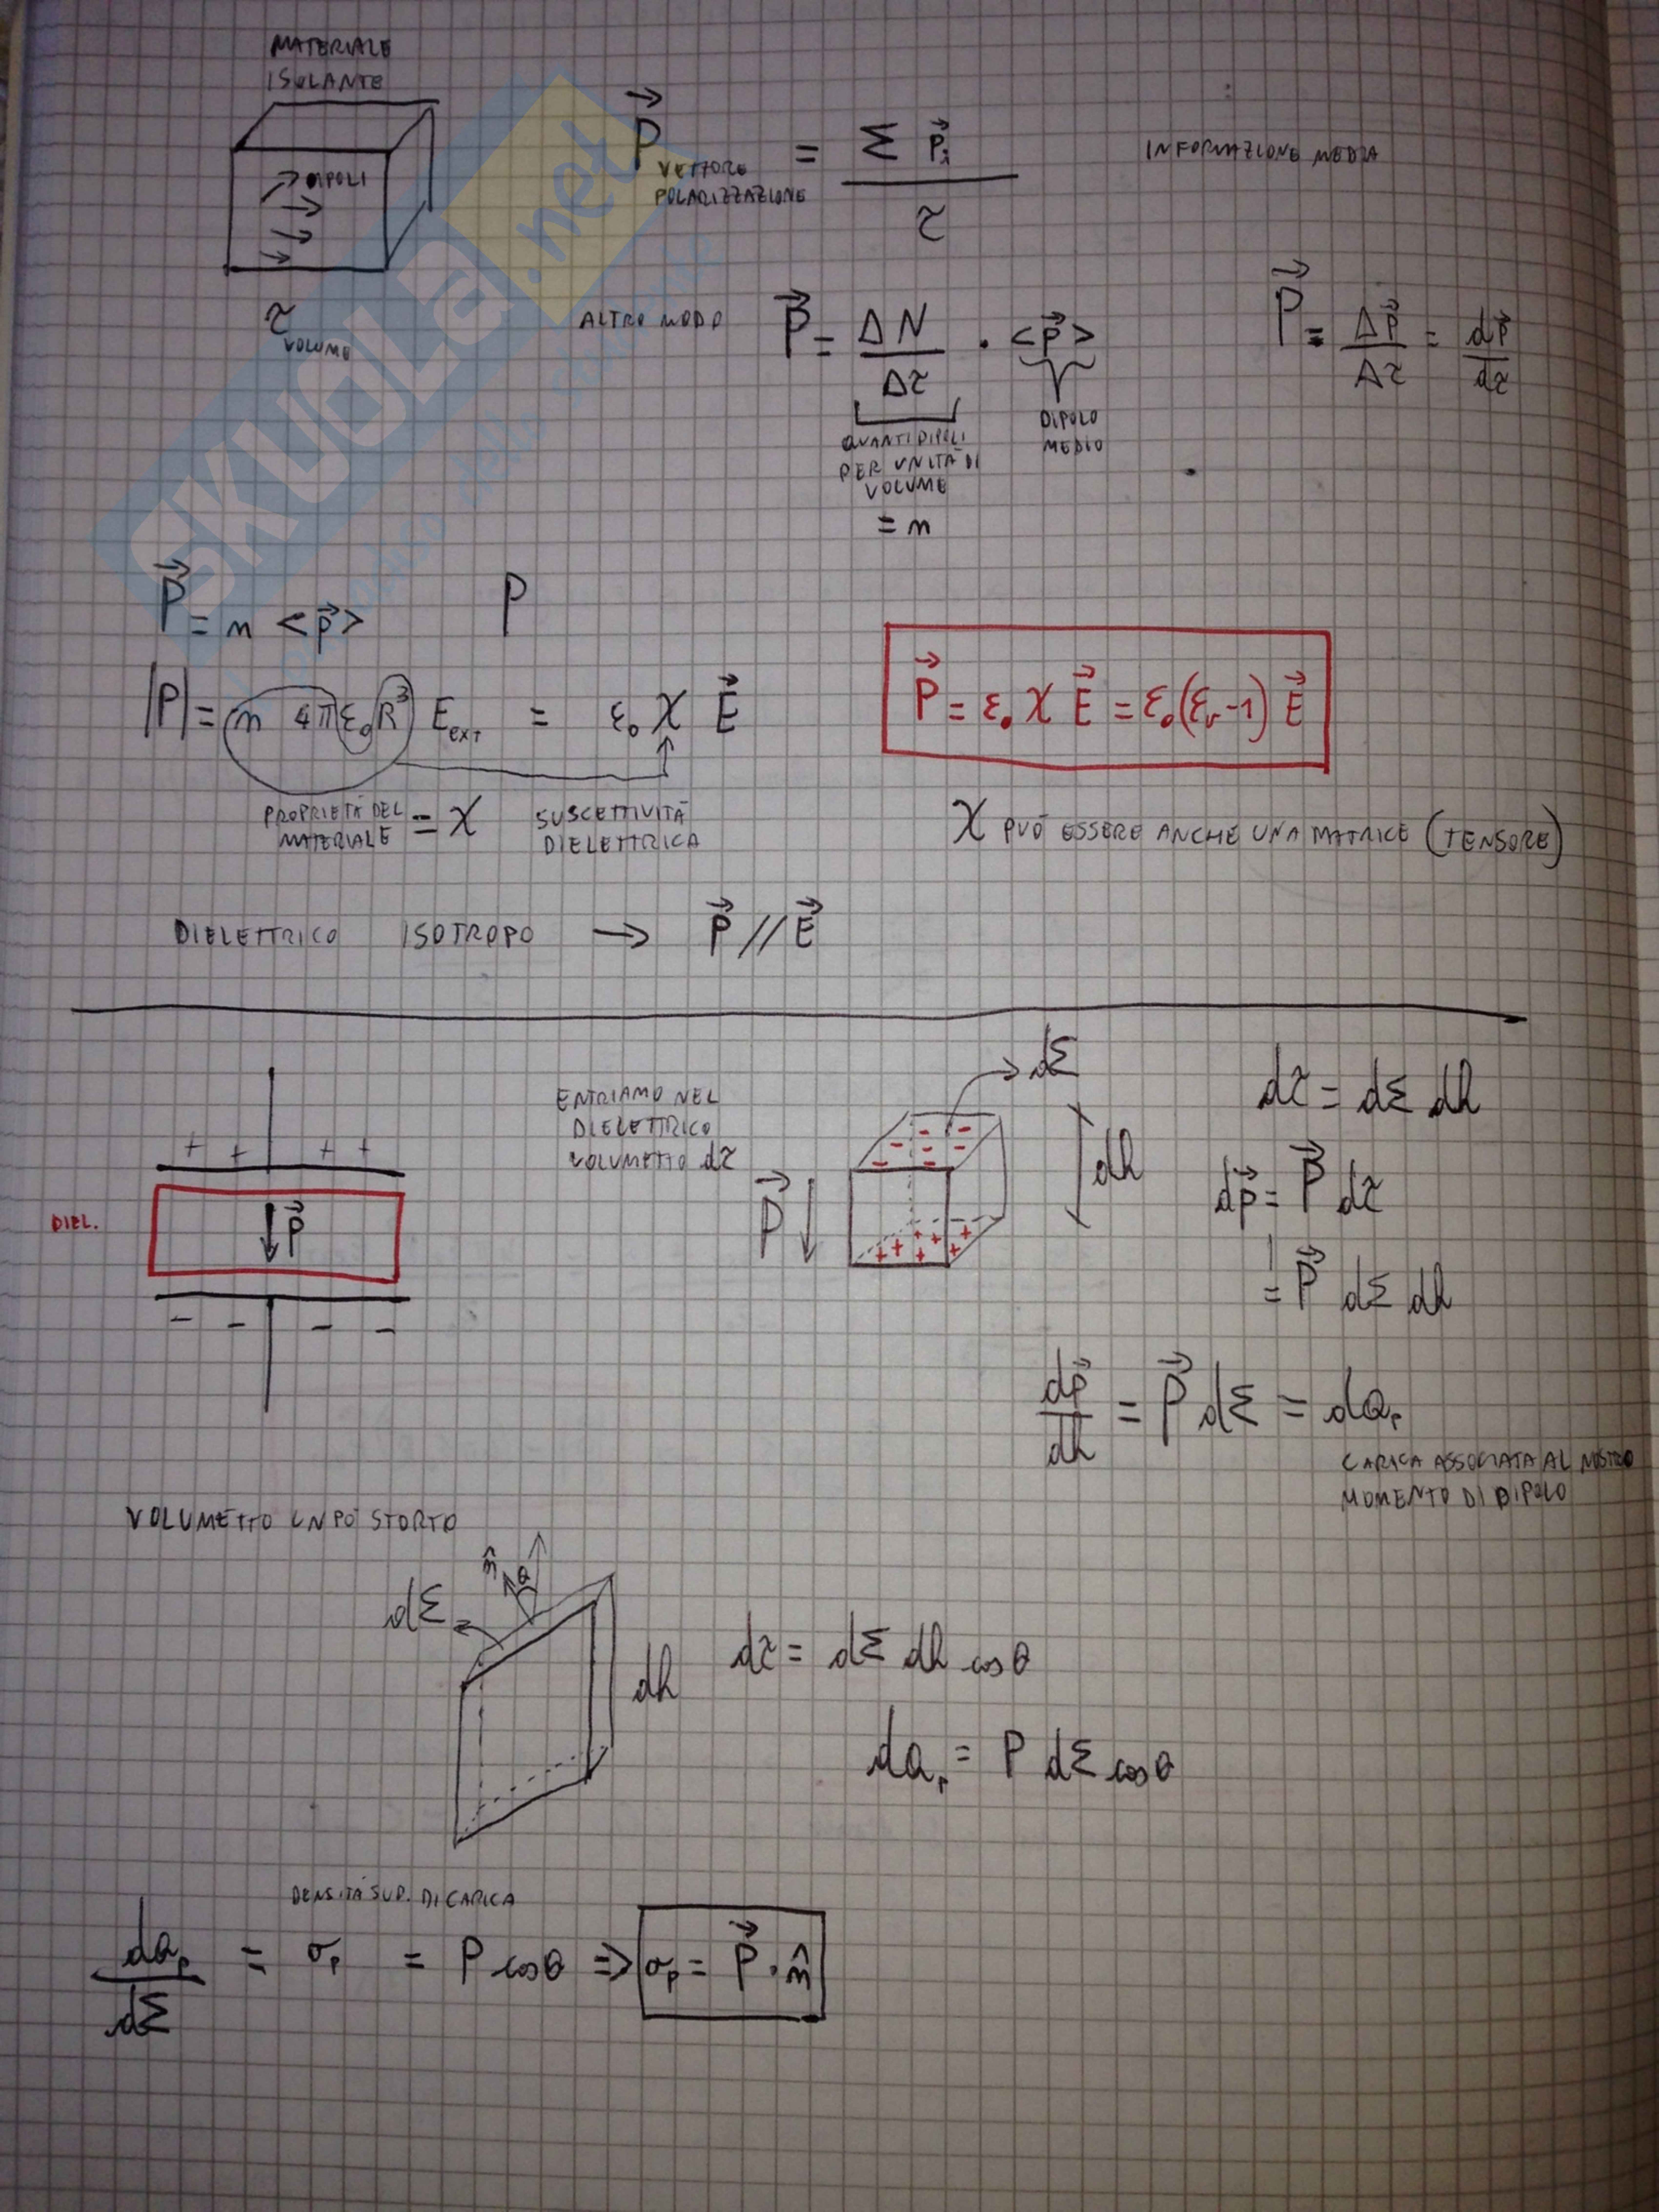 MATERIALE
ISOLANTE
DIPOLI
τ
VOLUME
P⃗ = Σ p⃗i / τ
VETTORE
POLARIZZAZIONE
INFORMAZIONE MEDIA
ALTRO MODO
P⃗ = ΔN/Δτ · <p⃗>
QUANTI DIPOLI
PER UNITÀ DI
VOLUME
= n
DIPOLO
MEDIO
P⃗ = Δp⃗/Δτ = dp⃗/dτ
P⃗ = n <p⃗>
P
|P| = n 4π ε₀ R³ E_EXT = ε₀ χ E⃗
P⃗ = ε₀ χ E⃗ = ε₀ (εr - 1) E⃗
PROPRIETÀ DEL
MATERIALE = χ
SUSCETTIVITÀ
DIELETTRICA
χ PUÒ ESSERE ANCHE UNA MATRICE (TENSORE)
DIELETTRICO ISOTROPO → P⃗ // E⃗
+ + + +
DIEL.
P⃗
- - - -
ENTRIAMO NEL
DIELETTRICO
VOLUMETTO dτ
dΣ
P⃗
dh
dτ = dΣ dh
dp⃗ = P⃗ dτ
= P⃗ dΣ dh
dp⃗/dh = P⃗ dΣ = dQp
CARICA ASSOCIATA AL NOSTRO
MOMENTO DI DIPOLO
VOLUMETTO UN PO' STORTO
n̂ θ
dΣ
dh
dτ = dΣ dh cosθ
dQp = P dΣ cosθ
DENSITÀ SUP. DI CARICA
dQp/dΣ = σp = P cosθ ⇒ σp = P⃗ · n̂
SKUOLA.net